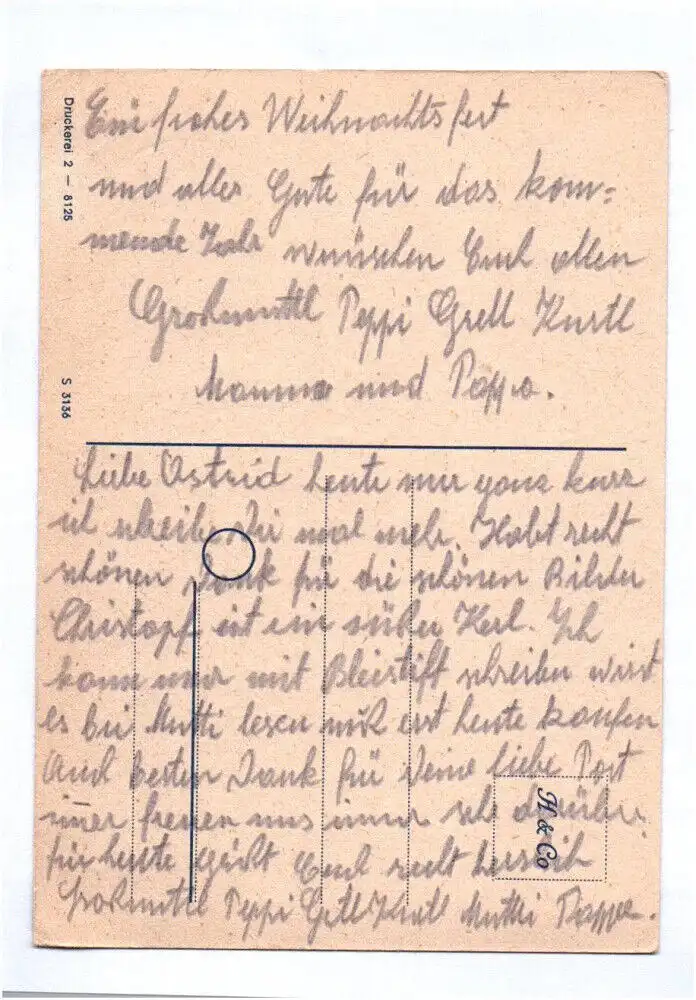 Ein frohes Weihnachtsfest
und alles Gute für das kom=
mende Jahr wünschen Euch allen
Großmuttl Peppi Gretl Kurtl
Mamma und Pappa.
Liebe Astrid heute nur ganz kurz
ich schreibe Dir mal mehr. Habt recht
schönen Dank für die schönen Bilder
Christopf ist ein süßer Kerl. Ich
kann nur mit Bleistift schreiben wirst
es bei Mutti lesen muß erst heute kaufen
Auch besten Dank für Deine liebe Post
imer freuen uns immer sehr darüber.
für heute grüßt Euch recht herzlich
Großmuttl Peppi Gretl Kurtl Mutti Pappa.
Druckerei 2 — 8125
S 3136
H & Co